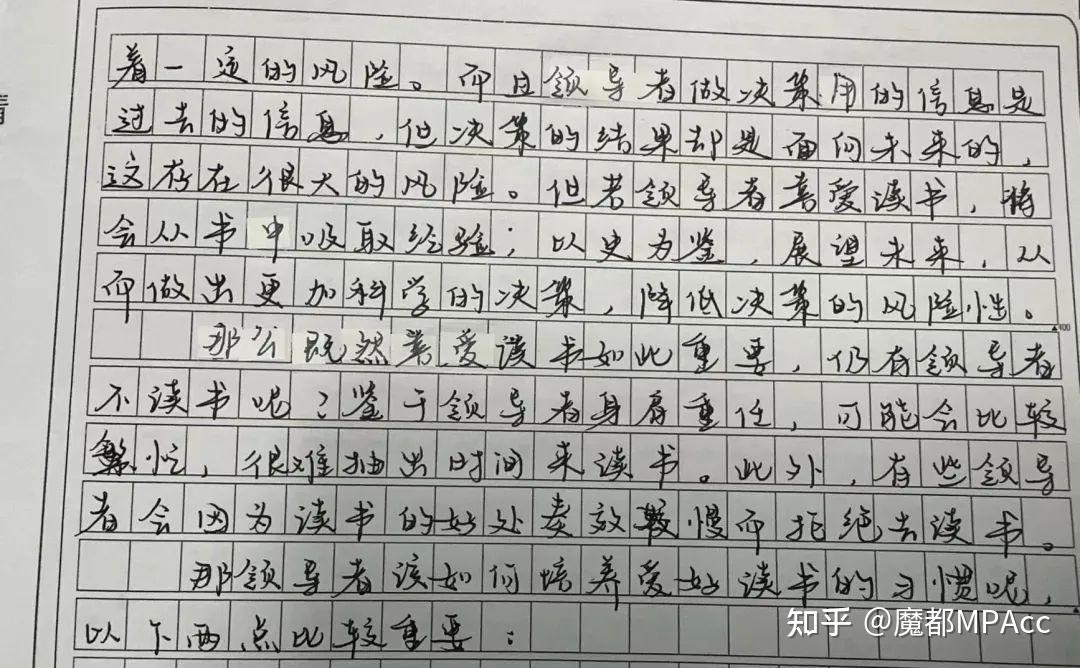 着一定的风险。而且领导者做决策用的信息是
过去的信息，但决策的结果却是面向未来的，
这存在很大的风险。但若领导者喜爱读书，将
会从书中吸取经验；以史为鉴，展望未来，从
而做出更加科学的决策，降低决策的风险性。
那么既然喜爱读书如此重要，仍有领导者
不读书呢？鉴于领导者身肩重任，可能会比较
繁忙，很难抽出时间来读书。此外，有些领导
者会因为读书的好处奏效较慢而拒绝去读书。
那领导者该如何培养爱好读书的习惯呢，
以下两点比较重要：
400
知乎 @魔都MPAcc